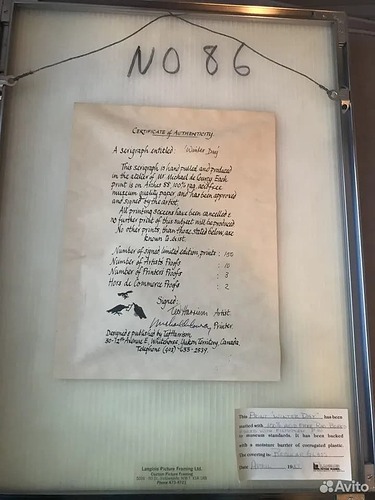 NO 86
CERTIFICATE OF AUTHENTICITY
A serigraph entitled: 'Winter Day'
This serigraph is hand pulled and produced
in the atelier of Mr. Michael de Courcy. Each
print is on Arches 88 100% rag, acid free
museum quality paper and has been approved
and signed by the artist.
All printing screens have been cancelled &
no further print of this subject will be produced
No other prints, than those stated below, are
known to exist.
Number of signed limited edition prints : 150
Number of Artists Proofs : 10
Number of Printers Proofs : 3
Hors de Commerce Proofs : 2
Signed:
Ted Harrison Artist
Printer
Designed & published by Ted Harrison
30-12th Avenue E, Whitehorse, Yukon Territory, Canada.
Telephone (403)-633-2539.
This PRINT "WINTER DAY" has been
matted with 100% ACID FREE RAG
to museum standards. It has been backed
with a moisture barrier of corrugated plastic.
The covering is: REGULAR GLASS
Date APRIL
Langlois Picture Framing Ltd.
Custom Picture Framing
Avito